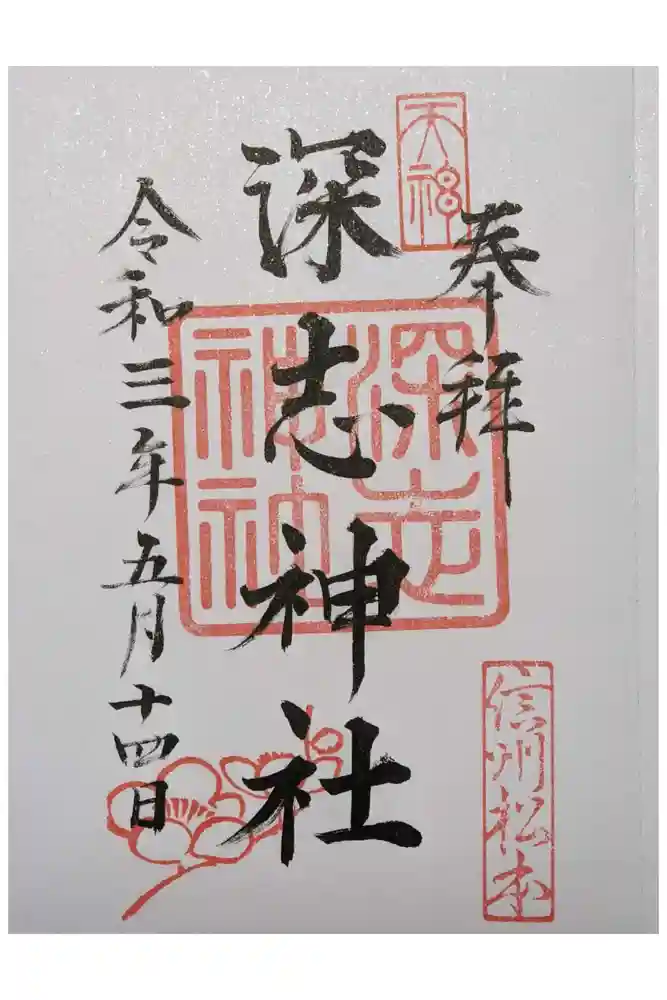 天神
奉拝
信州松本
深志神社
深志神社
令和三年五月十四日